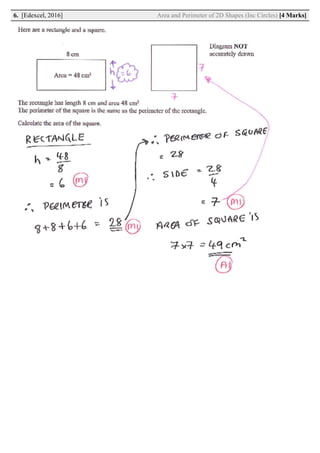 6. [Edexcel, 2016] Area and Perimeter of 2D Shapes (Inc Circles) [4 Marks]
Here are a rectangle and a square.
Diagram NOT
accurately drawn
8 cm
Area = 48 cm²
h = 6
7
7
The rectangle has length 8 cm and area 48 cm²
The perimeter of the square is the same as the perimeter of the rectangle.
Calculate the area of the square.
RECTANGLE
h = 48/8
= 6 (M1)
∴ PERIMETER IS
8+8+6+6 = 28 (M1)
∴ PERIMETER OF SQUARE
= 28
∴ SIDE = 28/4
= 7 (M1)
AREA OF SQUARE IS
7×7 = 49 cm²
(A1)